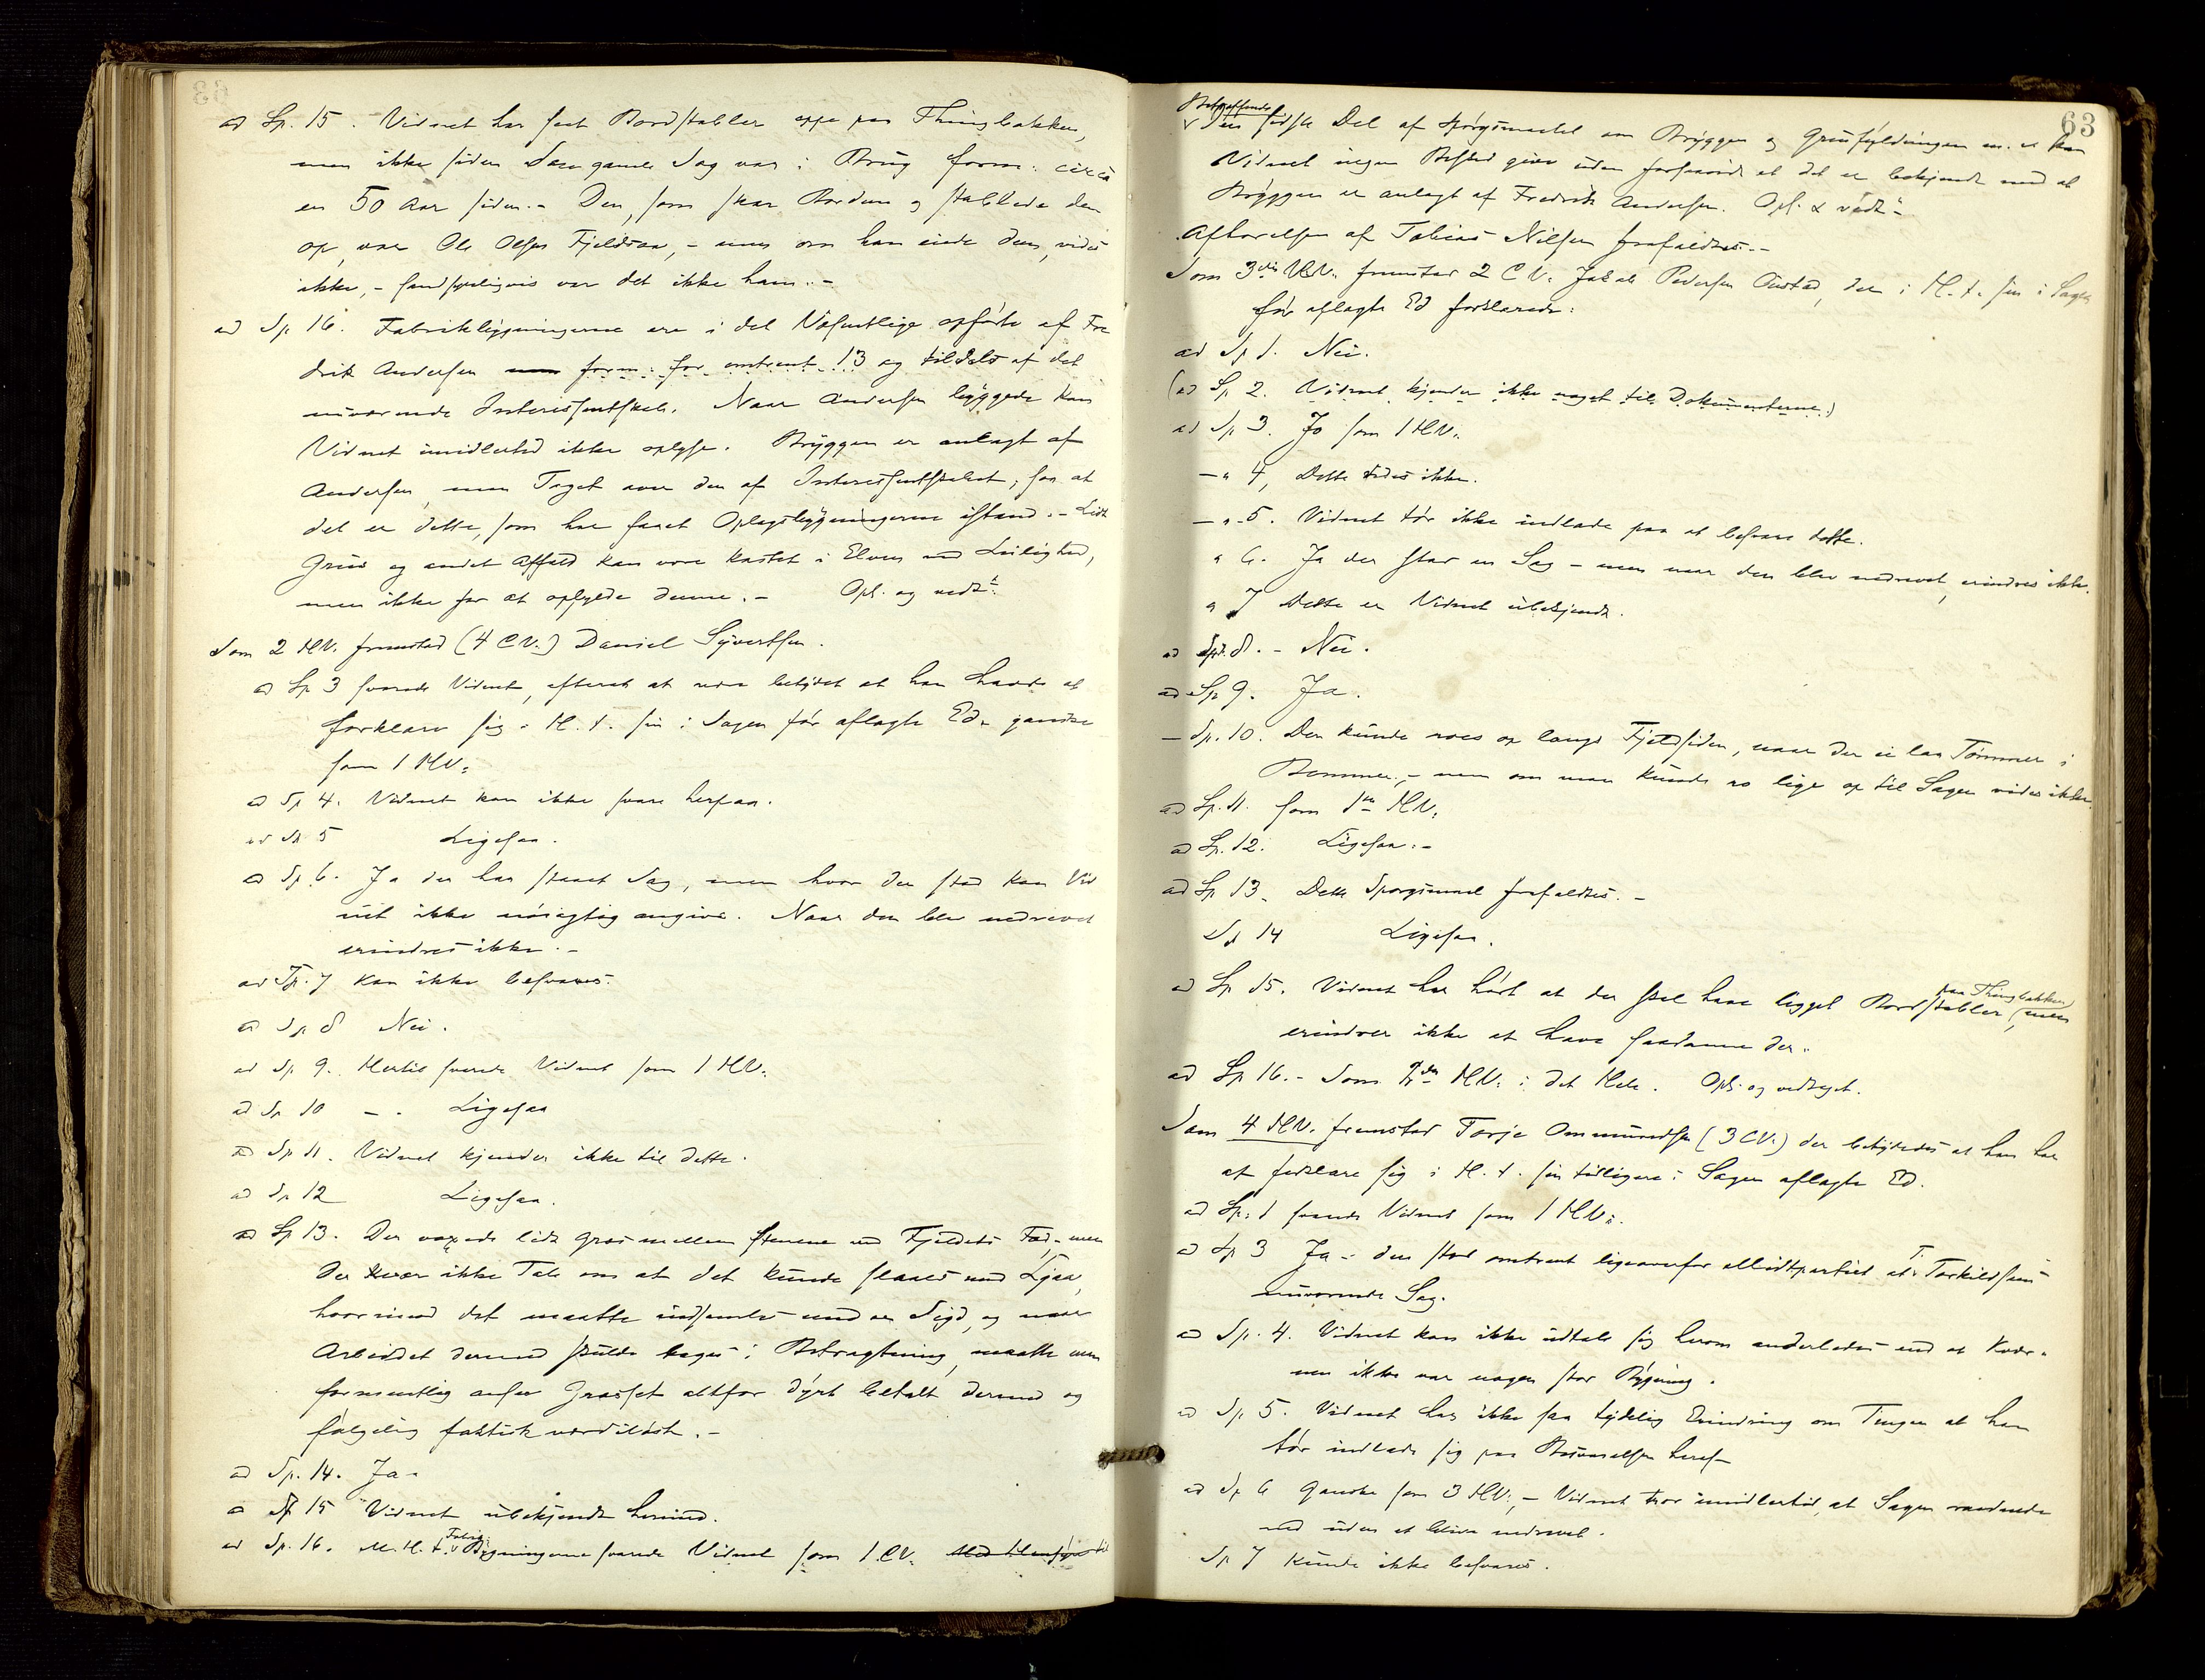 ad Sp. 15. Vidnet har seet Bordstabler oppe paa Thingbakken,
men ikke siden den gamle Sag var i Brug form: circa
en 50 Aar siden. - Den, som skar Bordene og stablede dem
op, var Ole Olsen Fjeldsaa, - men om han eiede dem, vides
ikke, - sandsynligvis var det ikke ham. -
ad Sp. 16. Fabrikbygningerne ere i det Væsentlige opførte af Fre
drik Andersen form: for omtrent 13 og tildels af det
nuværende Interessentskab. Naar Andersen byggede kan
Vidnet imidlertid ikke oplyse. Bryggen er anlagt af
Andersen, men Taget over den af Interessentskabet, saa at
det er dette, som har faaet Oplagsbygningerne istand. - Lidt
Grus og andet Affald kan være kastet i Elven ved Leilighed,
men ikke for at opfylde denne. - Opl. og vedt.
Som 2 HV. fremstod (4 CV.) Daniel Syvertsen.
ad Sp 3 svarede Vidnet, efterat at være betydet at han havde at
forklare sig i H. t. sin i Sagen før aflagte Ed, ganske
som 1 HV.
ad Sp 4. Vidnet kan ikke svare herpaa.
ad Sp 5 Ligesaa.
ad Sp 6. Ja der har staaet Sag, men hvor den stod kan Vid
net ikke nøiagtig angive. Naar den blev nedrevet
erindres ikke. -
ad Sp. 7 kan ikke besvares.
ad Sp 8 Nei.
ad Sp 9. Hertil svarede Vidnet som 1 HV.
ad Sp 10 - . Ligesaa
ad Sp 11. Vidnet kjender ikke til dette.
ad Sp 12 Ligesaa.
ad Sp 13. Der voxede lidt Græs mellem Stenene ved Fjeldets Fod, men
der var ikke Tale om at det kunde slaaes med Ljaa,
hvorimod det maatte indsamles med en Sigd, og naar
Arbeidet dermed skulde tages i Betragtning, maatte man
formentlig anse Græsset altfor dyrt betalt dermed og
følgelig faktisk værdiløst. -
ad Sp. 14. Ja -
ad Sp 15 Vidnet ubekjendt hermed.
ad Sp. 16. M. H. t. Fabrig Bygningerne svarede Vidnet som 1 CV. Med Hensyn til
63
Betræffende
Den sidste Del af Spørgsmaalet om Bryggen og Grusfyldningen m. v. kan
Vidnet ingen Besked give uden forsaavidt at det er bekjendt med at
Bryggen er anlagt af Fredrik Andersen. Opl. & vedt.
Afhørelsen af Tobias Nilsen frafaldtes. -
Som 3die HV. fremstod 2 CV. Jakob Pedersen Austad, der i H. t. sin i Sagen
før aflagte Ed forklarede:
ad Sp 1. Nei.
(ad Sp 2. Vidnet kjender ikke noget til Dokumenterne.)
ad Sp 3. Jo som 1 HV.
- " 4, Dette vides ikke.
- " 5. Vidnet tør ikke indlade paa at besvare dette.
" 6. Ja der stod en Sag - men naar den blev nedrevet, erindres ikke.
" 7 Dette er Vidnet ubekjendt.
ad Sp. 8. - Nei.
ad Sp 9. Ja.
- Sp. 10. Der kunde roes op langs Fjeldsiden, naar der ei laa Tømmer i
Bommen, - men om man kunde ro lige op til Sagen vides ikke.
ad Sp. 11. som 1ste HV.
ad Sp. 12. Ligesaa. -
ad Sp 13. Dette Spørgsmaal frafaldtes. -
Sp 14 Ligesaa.
ad Sp 15. Vidnet har hørt at der skal have ligget Bordstabler paa Thingbakken, men
erindrer ikke at have seet saadanne der.
ad Sp 16. - Som 2den HV. i det Hele. Opl. og vedtaget.
Som 4 HV. fremstod Torje Ommundsen (3 CV.) der betydedes at han har
at forklare sig i H. t. sin tidligere i Sagen aflagte Ed.
ad Sp. 1 svarede Vidnet som 1 HV.
ad Sp 3 Ja - den stod omtrent ligeoverfor T. Torkildsens
nuværende Sag.
ad Sp. 4. Vidnet kan ikke udtale sig herom anderledes end at Kvær-
nen ikke var nogen stor Bygning.
ad Sp. 5. Vidnet har ikke saa tydelig Erindring om Tingen at han
tør indlade sig paa Besvarelsen heraf
ad Sp 6 ganske som 3 HV. - Vidnet tror imidlertid, at Sagen raadnede
ned uden at blive nedrevet.
Sp 7 kunde ikke besvares.